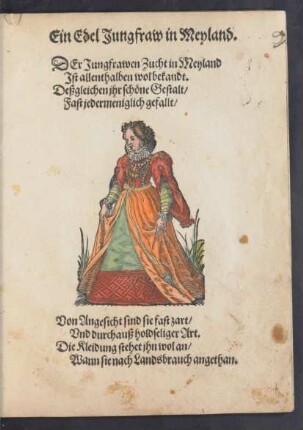 Ein Edel Jungfraw in Meyland.
DEr Jungfrawen Zucht in Meyland
Ist allenthalben wol bekandt.
Deßgleichen jhr schöne Gestalt/
Fast jedermeniglich gefallt/
Von Angesicht sind sie fast zart/
Vnd durchauß holdseliger Art.
Die Kleidung stehet jhn wol an/
Wann sie nach Landsbrauch angethan.